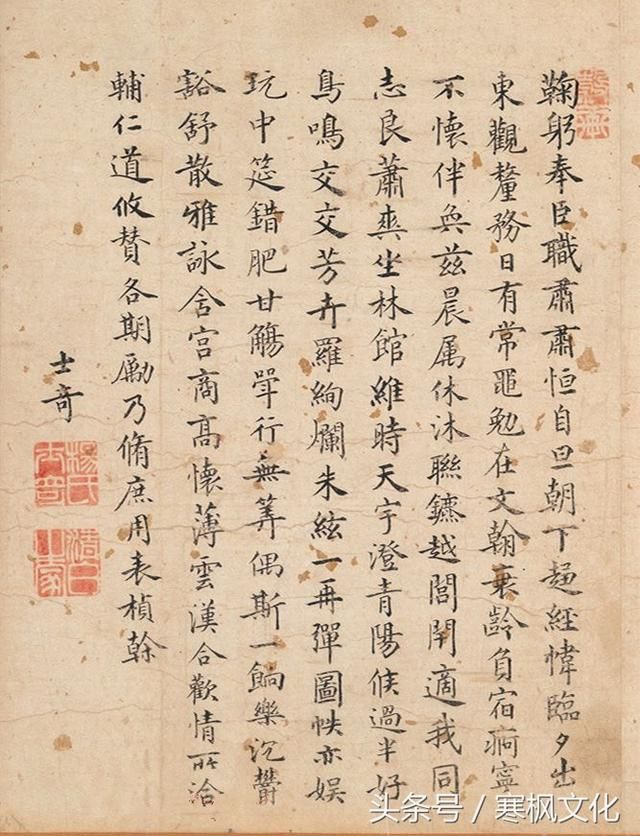 鞠躬奉臣職肅肅恒自旦朝下趨經幃臨夕出
東觀釐務日有常黽勉在文翰衰齡負宿痾寧
不懷伴奐茲晨属休沐聯鑣越閭閈適我同
志良蕭爽坐林館維時天宇澄青陽候過半好
鳥鳴交交芳卉羅絢爛朱絃一再彈圖帙亦娱
玩中筵錯肥甘觴斝行無筭偶斯一餉樂沉鬱
豁舒散雅詠含宫商高懷薄雲漢合歡情所洽
輔仁道攸賛各期勵乃脩庶用表楨榦
士奇
楊氏
士奇
頭条号 / 寒枫文化